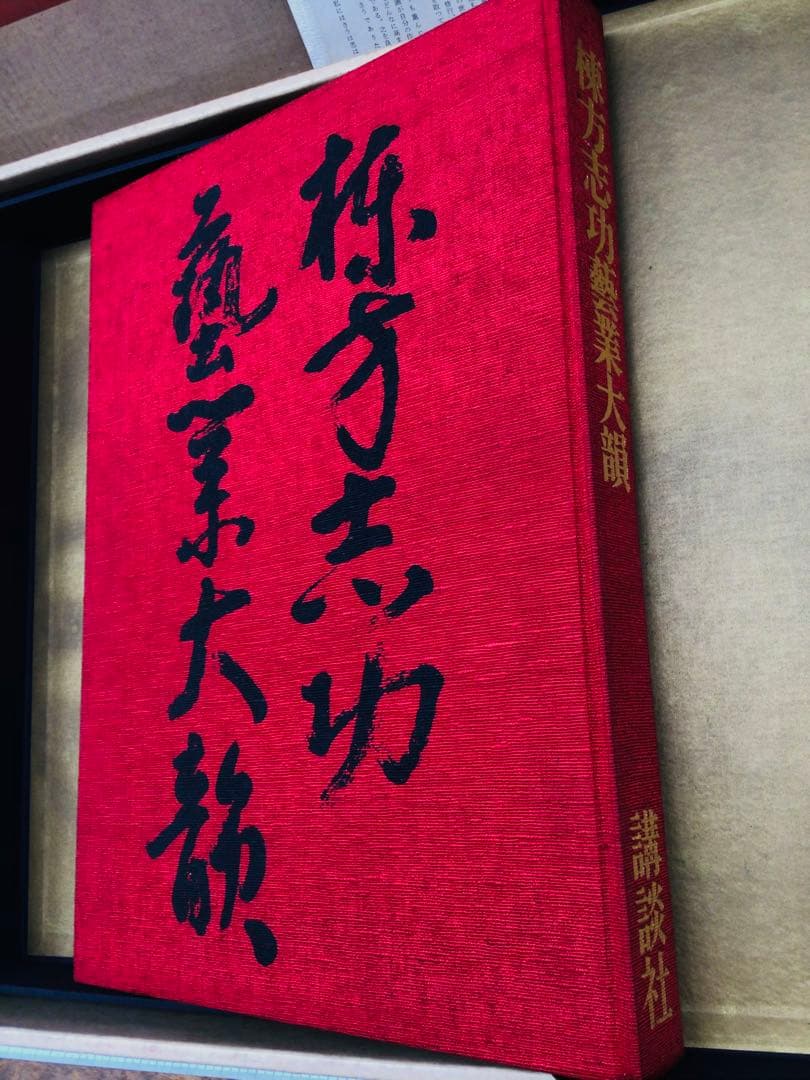 棟方志功
藝業大韻
棟方志功藝業大韻
講談社